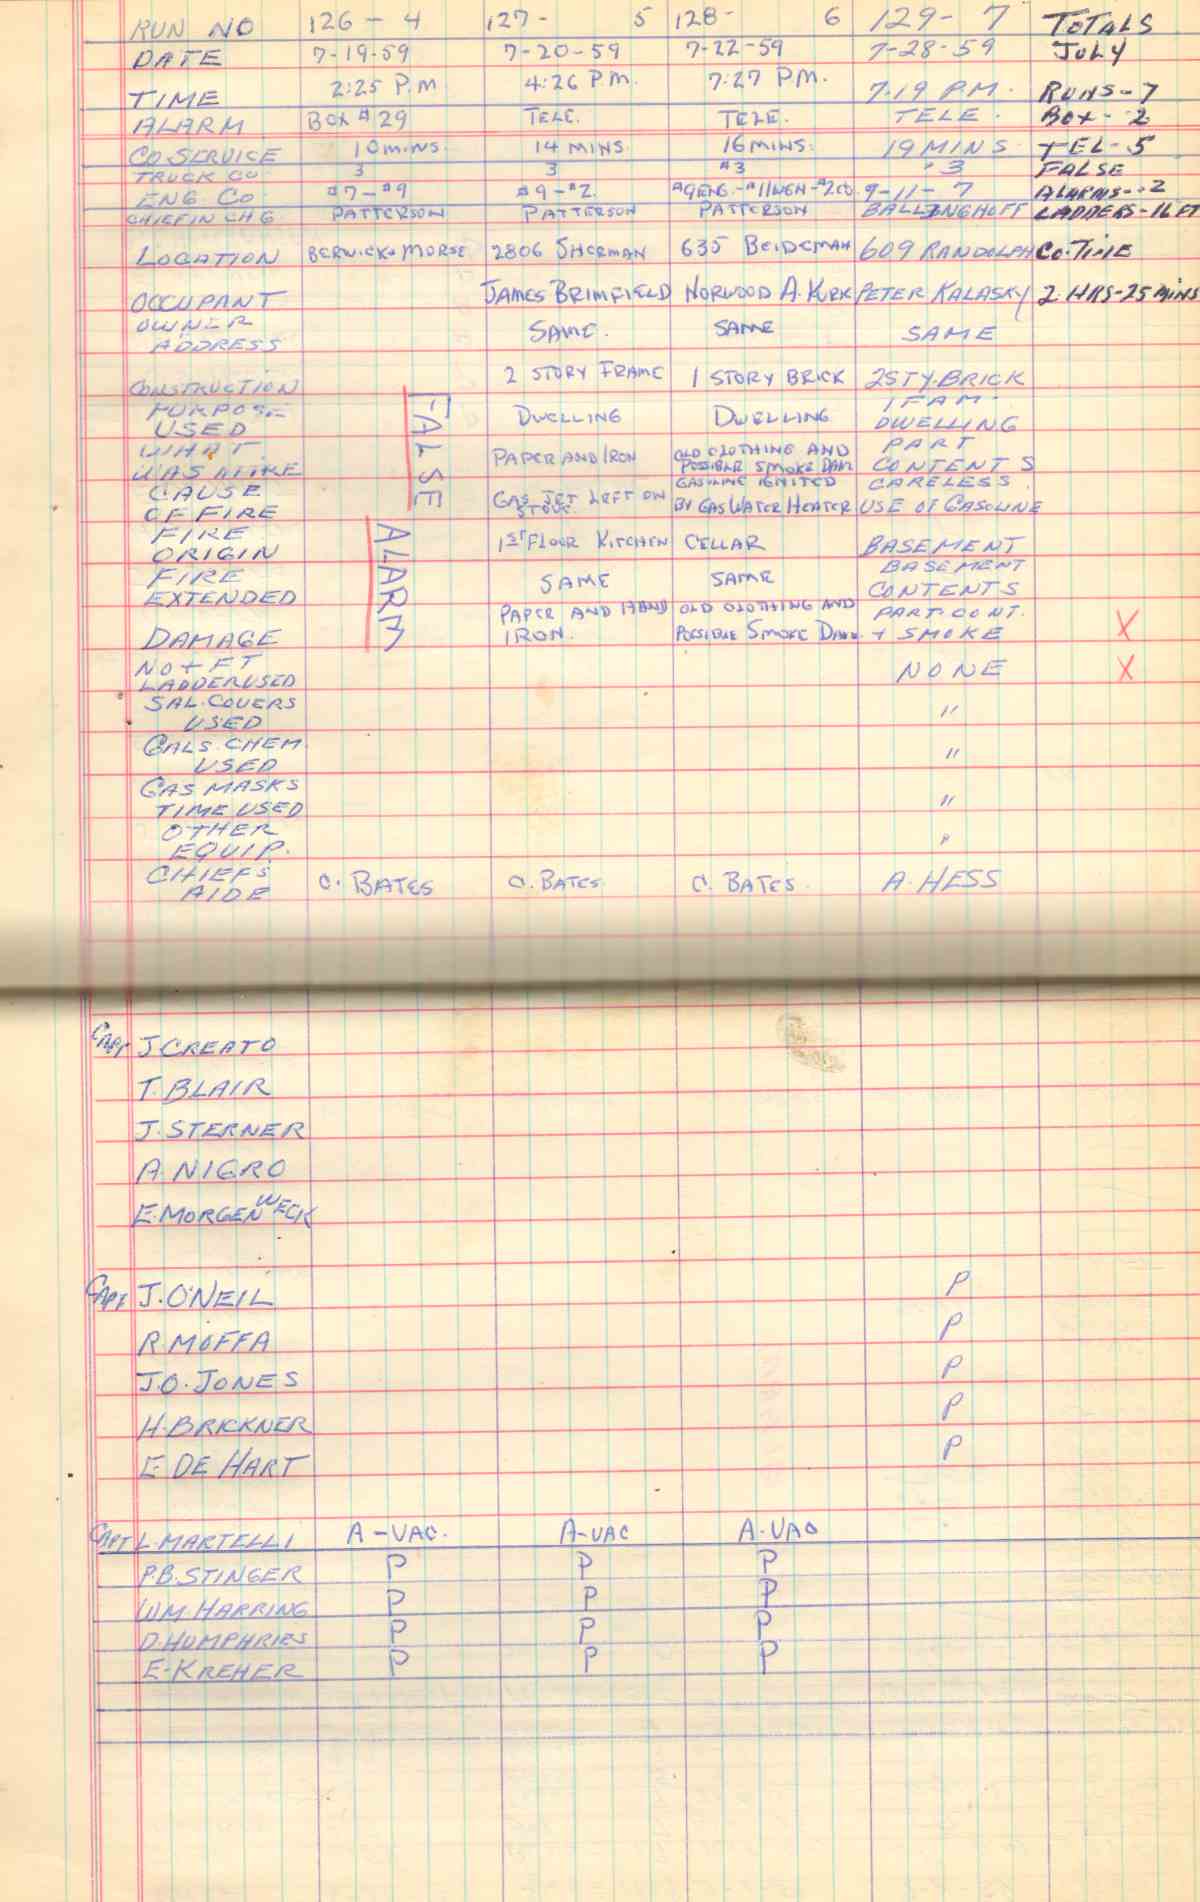 RUN NO 126 - 4 127- 5 128- 6 129- 7 TOTALS
DATE 7-19-59 7-20-59 7-22-59 7-28-59 JULY
TIME 2:25 P.M 4:26 P.M. 7:27 P.M. 7:19 P.M. RUNS-7
ALARM BOX #29 TELE. TELE. TELE. BOX-2
CO SERVICE 10 MINS. 14 MINS. 16 MINS. 19 MINS TEL-5
TRUCK CO 3 3 #3 3 FALSE
ENG CO #7-#9 #9-#2. 9-11-7 ALARMS--2
CHIEF IN CHG PATTERSON PATTERSON PATTERSON BALLINGHOFF LADDERS-16 FT
LOCATION BERWICK & MORSE 2806 SHERMAN 635 BEIDEMAN 609 RANDOLPH CO. TIME
OCCUPANT JAMES BRIMFIELD NORWOOD A. KIRK PETER KALASKY 2 HRS-25 MINS
OWNER
ADDRESS SAME. SAME SAME
CONSTRUCTION 2 STORY FRAME 1 STORY BRICK 2 STY. BRICK
PURPOSE 1 FAM.
USED DWELLING DWELLING DWELLING
WHAT OLD CLOTHING AND PART
WAS AFIRE PAPER AND IRON POSSIBLE SMOKE DAM CONTENTS
CAUSE GAS JET LEFT ON GASOLINE IGNITED CARELESS
OF FIRE STOVE. BY GAS WATER HEATER USE OF GASOLINE
FALSE
ALARM
FIRE
ORIGIN 1ST FLOOR KITCHEN CELLAR BASEMENT
FIRE BASEMENT
EXTENDED SAME SAME CONTENTS
PAPER AND HAND OLD CLOTHING AND PART. CONT.
DAMAGE IRON. POSSIBLE SMOKE DAM. + SMOKE X
NO + FT
LADDER USED NONE X
SAL. COVERS
USED "
GALS. CHEM.
USED "
GAS MASKS
TIME USED "
OTHER
EQUIP. "
CHIEFS
AIDE C. BATES C. BATES C. BATES A. HESS
CAPT J. CREATO
T. BLAIR
J. STERNER
A. NIGRO
E. MORGENWECK
CAPT J. O'NEIL P
R. MOFFA P
J.O. JONES P
H. BRICKNER P
E. DE HART P
CAPT L. MARTELLI A-VAC. A-VAC A-VAC
P.B. STINGER P P P
WM. HARRING P P P
D. HUMPHRIES P P P
E. KREHER P P P